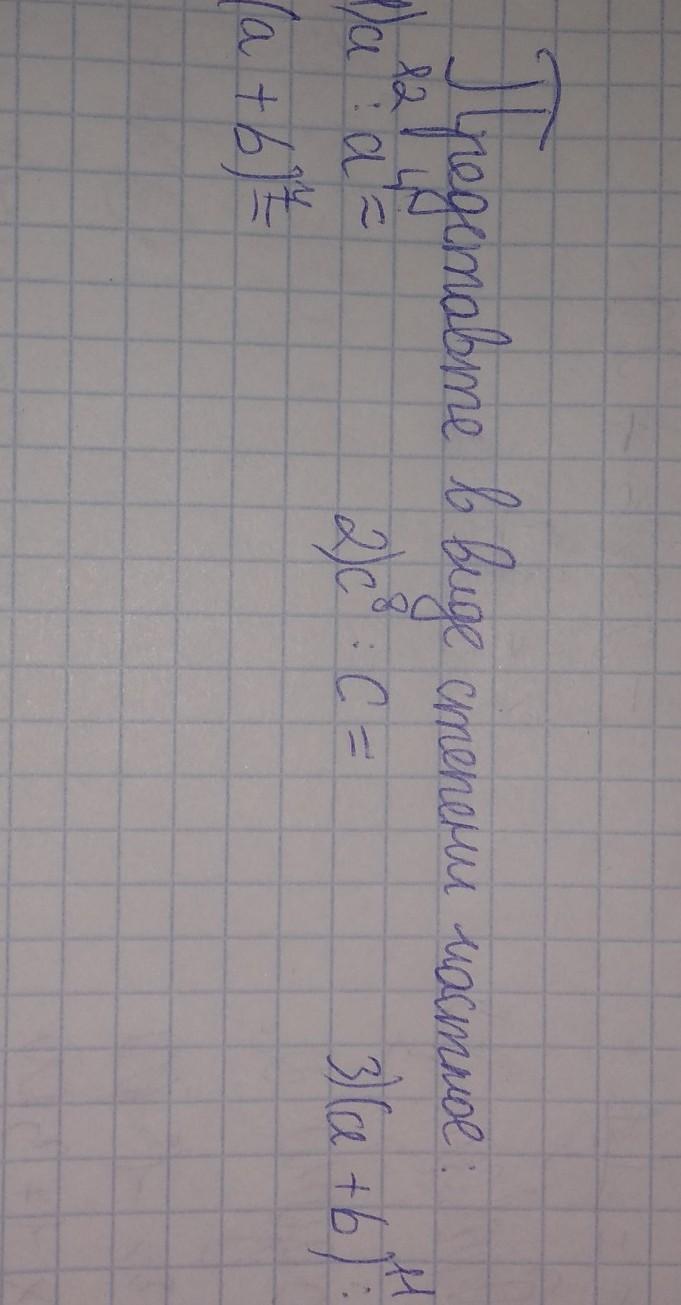 Представте в виде степени частное:
1) a¹² : a⁴ =   2) c⁸ : c =   3) (a + b)¹¹ :
(a + b)⁷ =